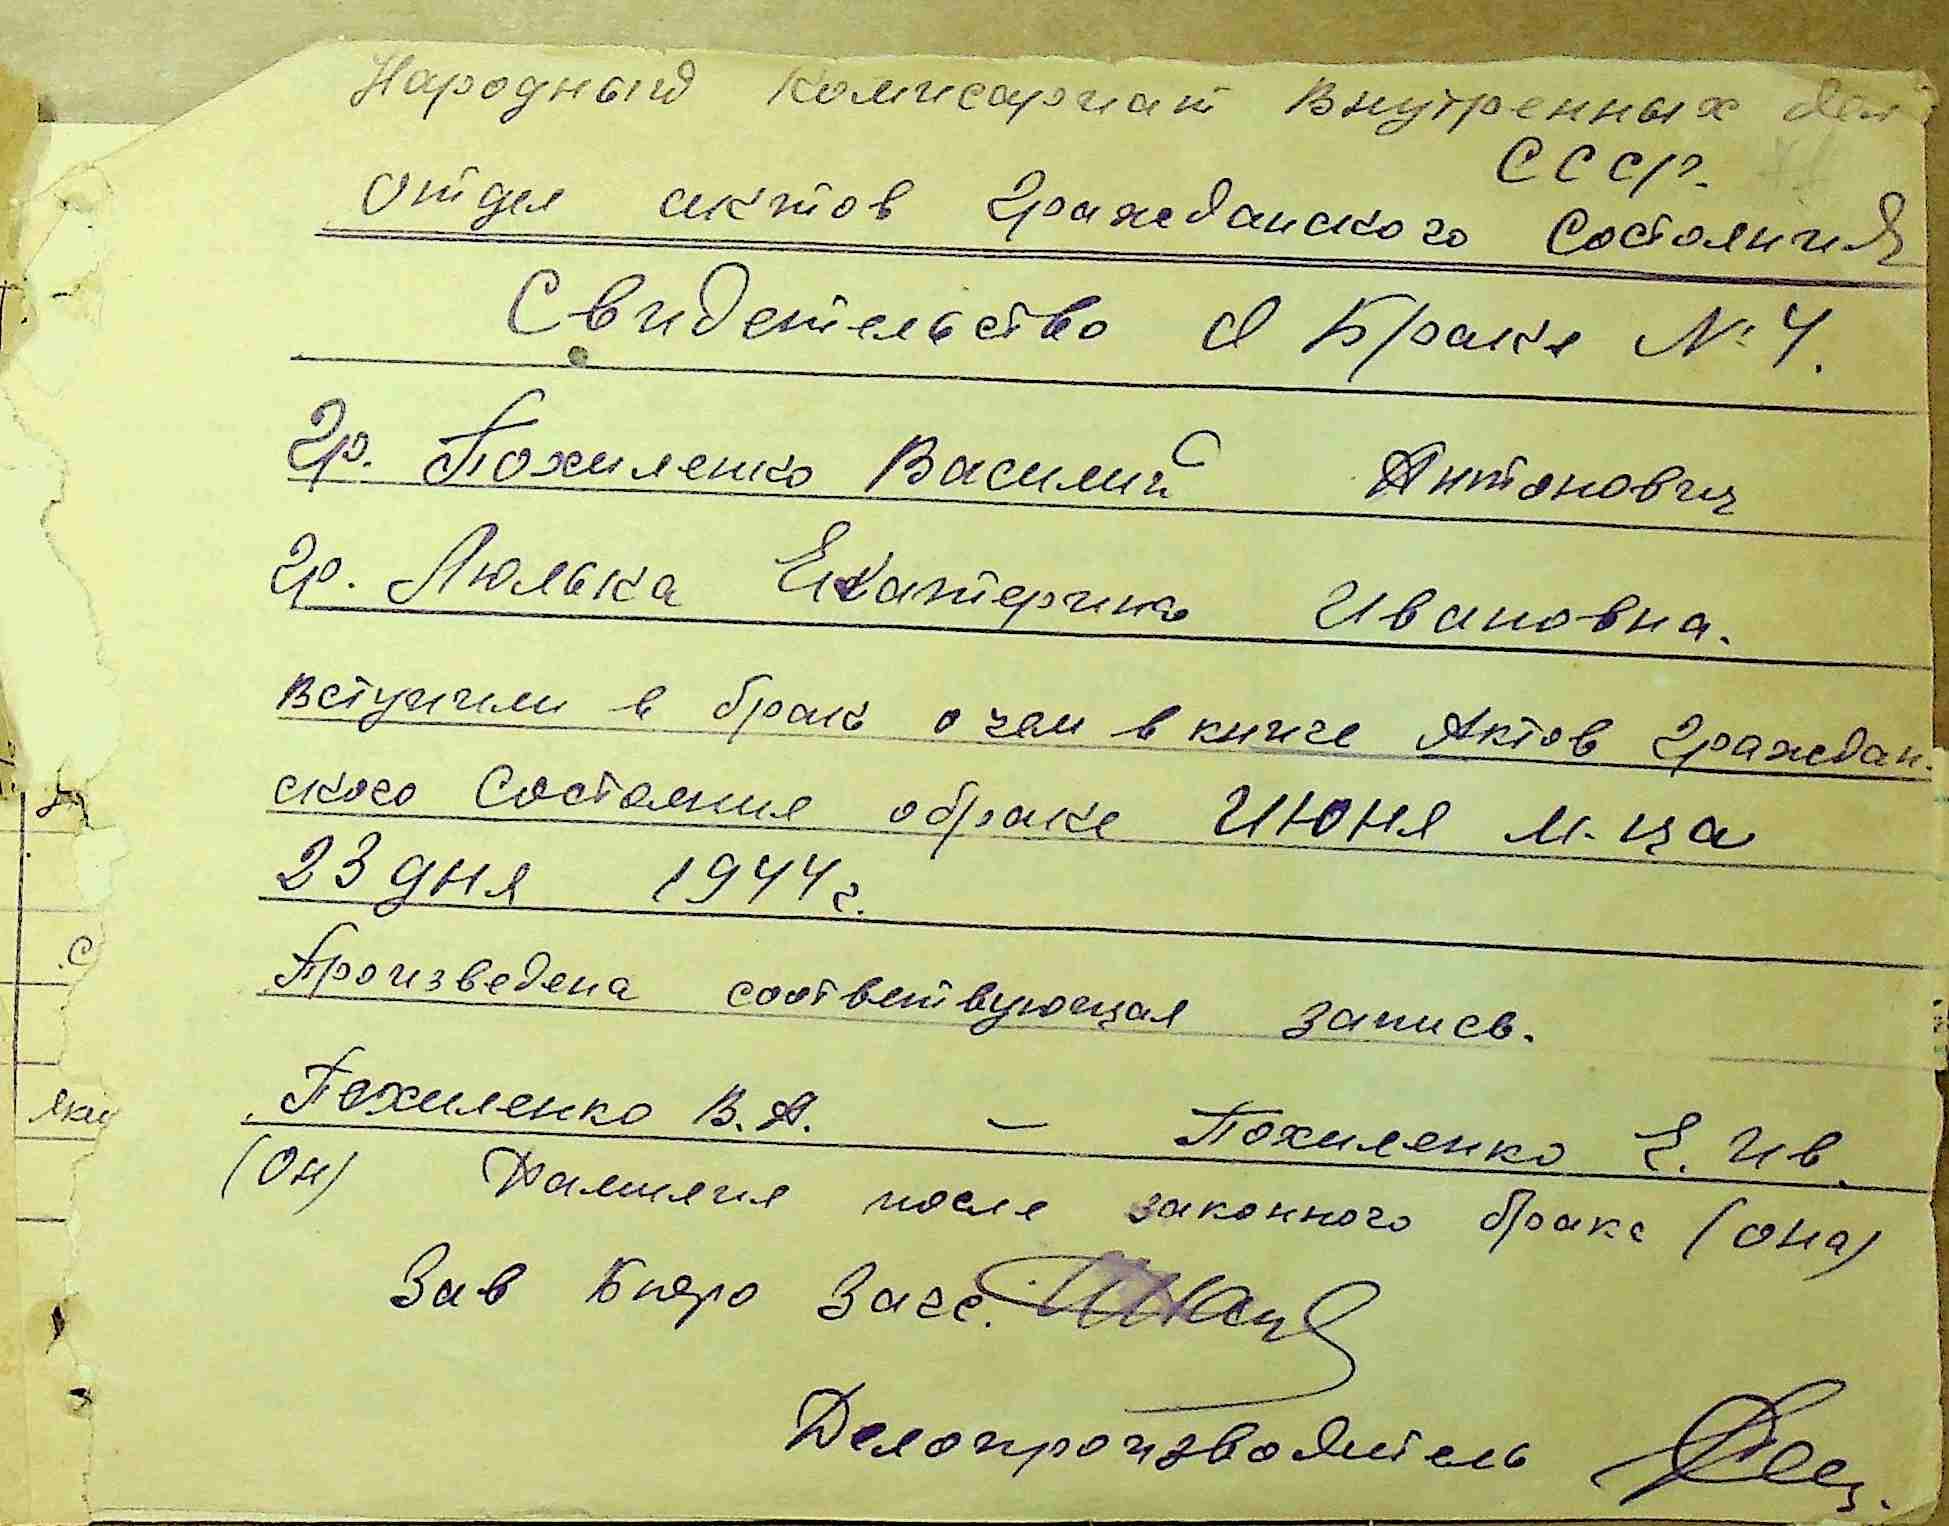 Народный Комисариат Внутренных дел
СССР.
Отдел актов Гражданского Состояния
Свидетельство о Браке № 4.
Гр. Похиленко Василий Антонович
Гр. Люлька Екатерина Ивановна.
вступили в брак о чем в книге Актов Граждан-
ского Состояния о браке Июня м-ца
23 дня 1944 г.
Произведена соответствующая запись.
Похиленко В. А. — Похиленко Е. Ив.
(Он) Фамилия после законного брака (она)
Зав Бюро Загс.
Делопроизводитель